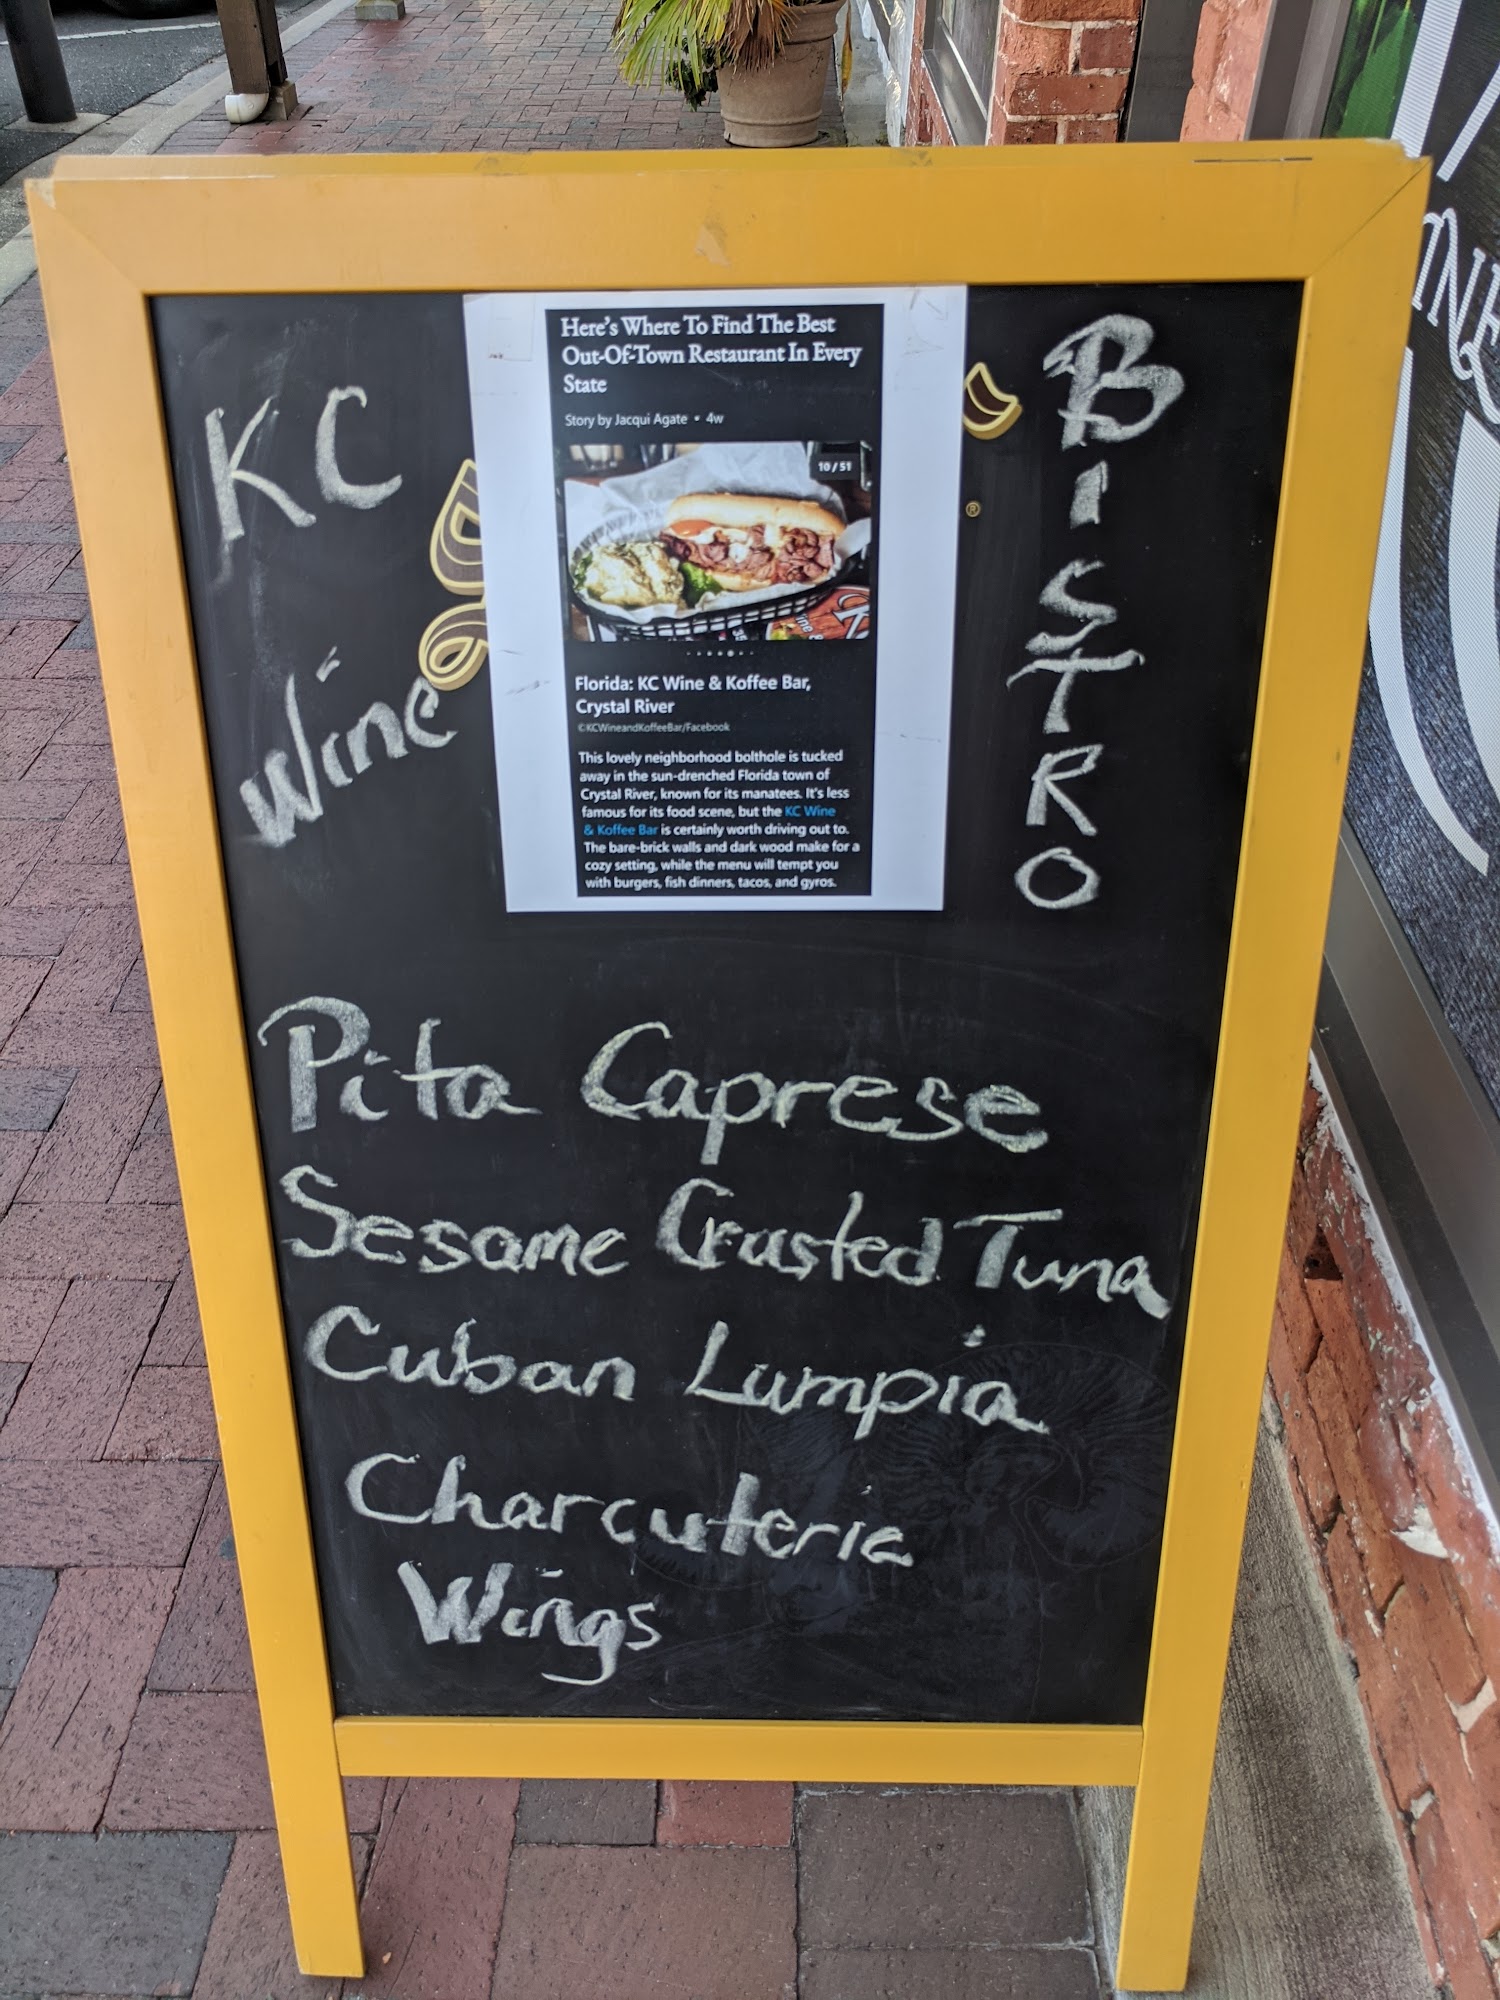 KC
Wine
BISTRO
Here's Where To Find The Best
Out-Of-Town Restaurant In Every
State
Story by Jacqui Agate • 4w
10 / 51
Florida: KC Wine & Koffee Bar,
Crystal River
©KCWineandKoffeeBar/Facebook
This lovely neighborhood bolthole is tucked
away in the sun-drenched Florida town of
Crystal River, known for its manatees. It's less
famous for its food scene, but the KC Wine
& Koffee Bar is certainly worth driving out to.
The bare-brick walls and dark wood make for a
cozy setting, while the menu will tempt you
with burgers, fish dinners, tacos, and gyros.
®
Pita Caprese
Sesame Crusted Tuna
Cuban Lumpia
Charcuterie
Wings